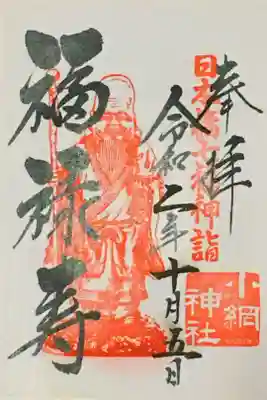 奉拝
日本橋七福神詣
令和二年十月五日
福禄寿
小網
神社